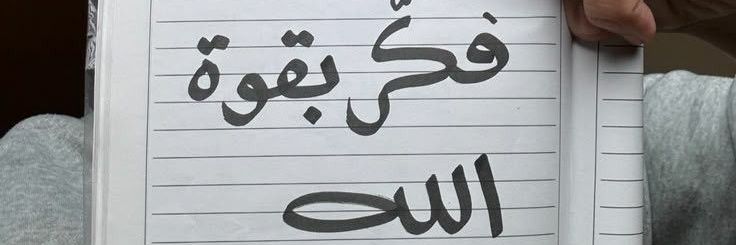 فكَّر بقوة
الله